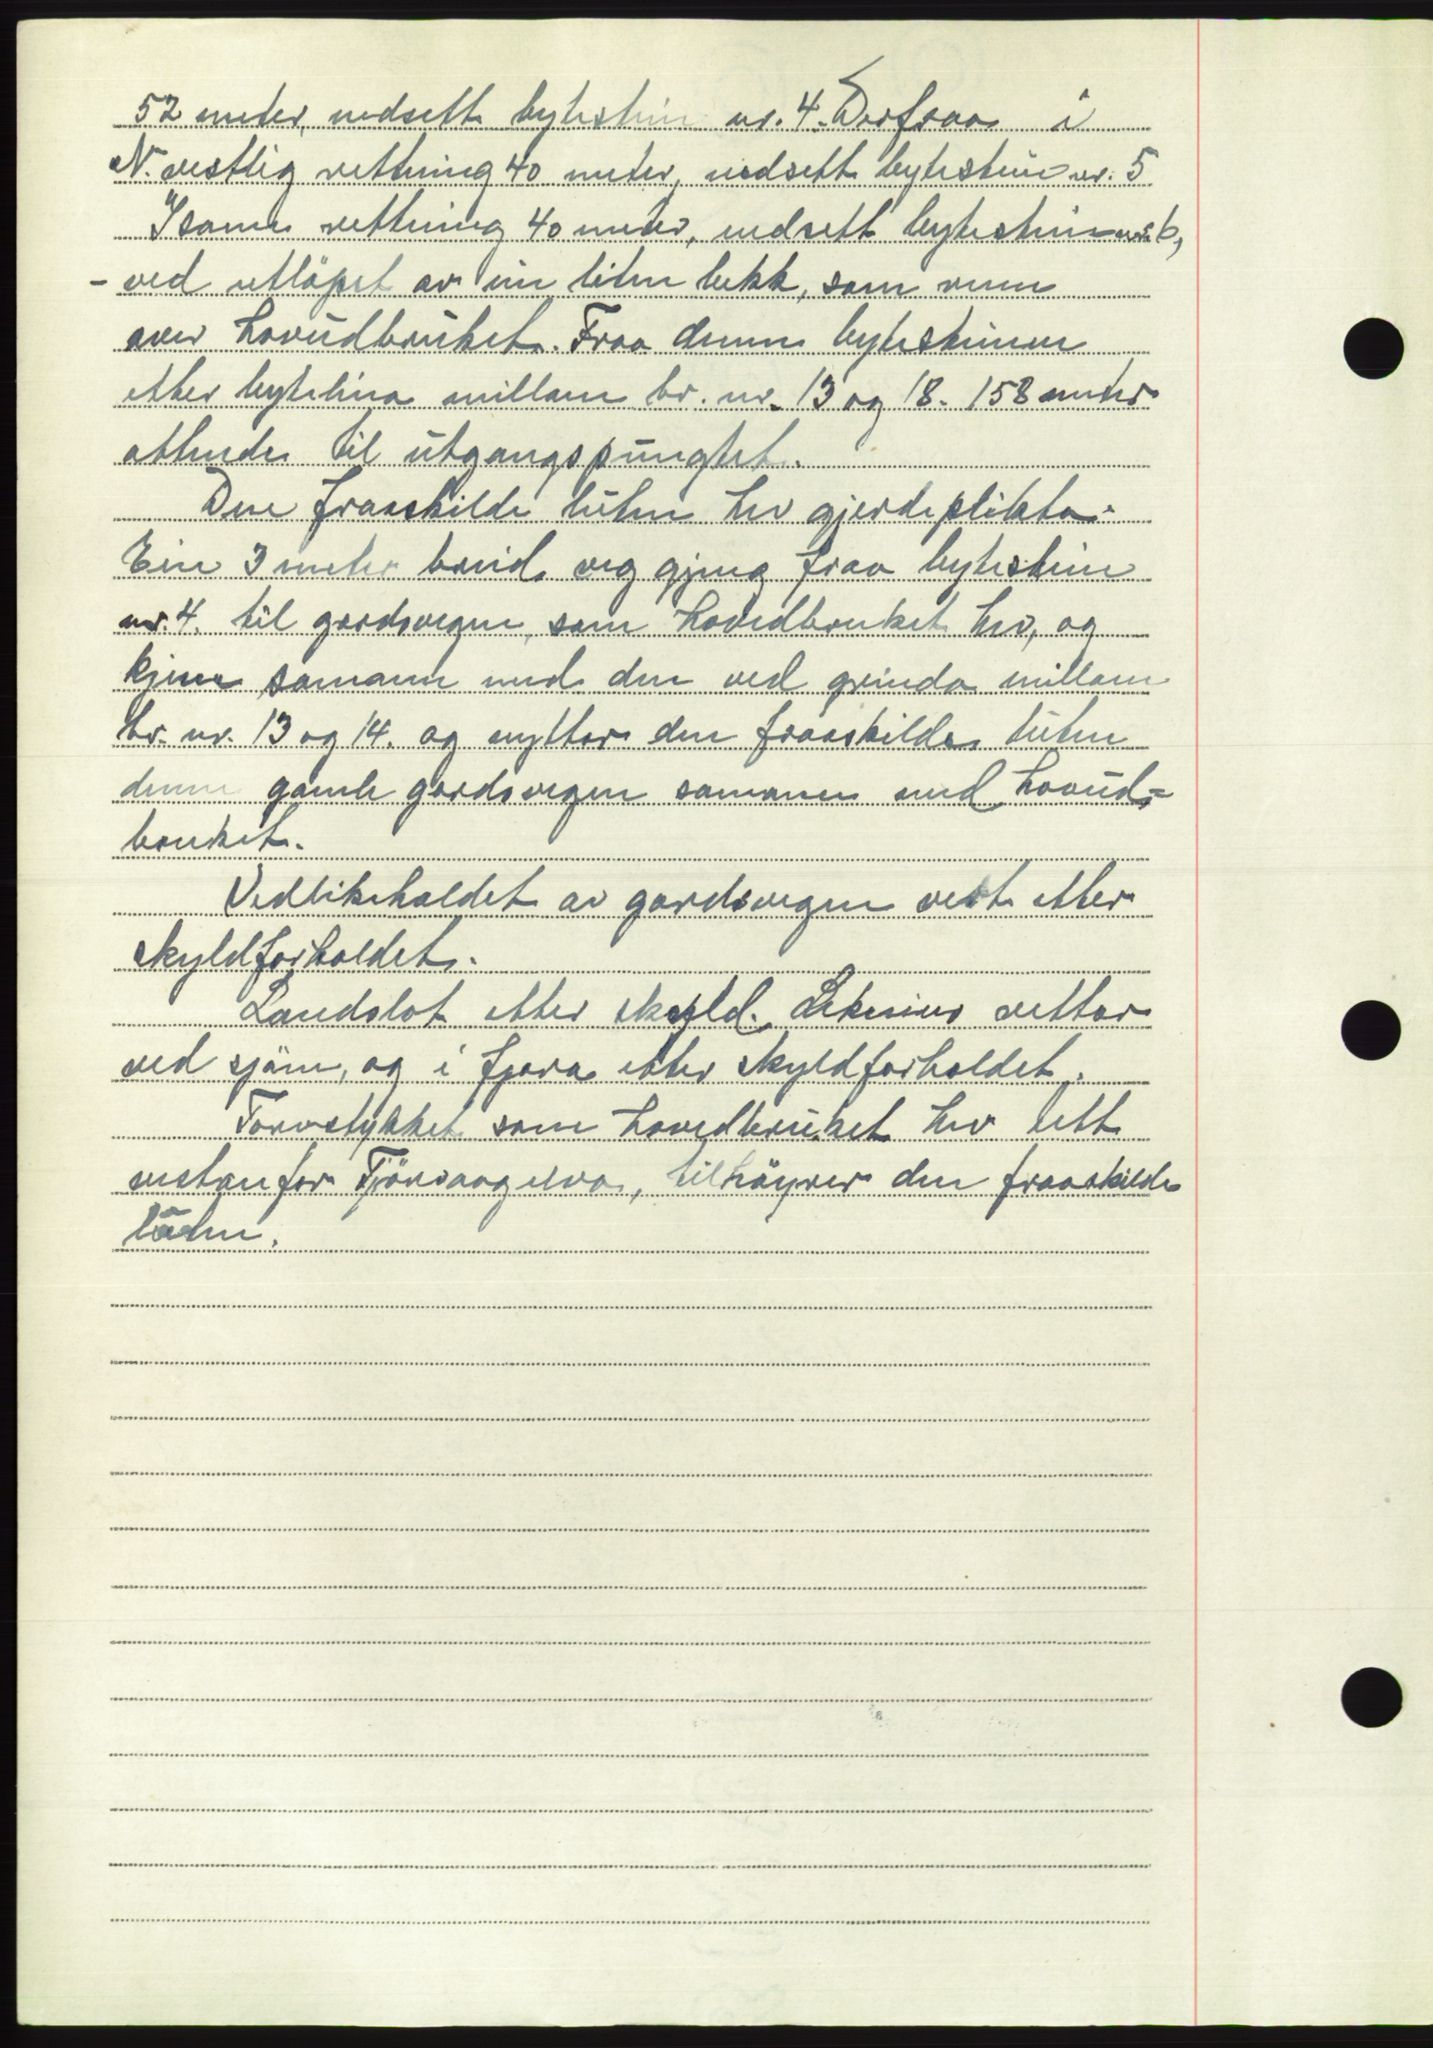 52 meter, nedsett bytestein nr. 4. Derfraa i
N. vestlig rettning 40 meter, nedsett bytestein nr. 5
I same rettning 40 meter, nedsett bytestein nr. 6,
- ved utlöpet av ein liten bekk, som renn
over hovudbruket. Fraa denne bytesteinen
etter bytelina millom br. nr. 13 og 18. 158 meter
attende til utgangspungtet.
Den fraaskilde luten hev gjerdeplikta.
Ein 3 meter breid veg gjeng fraa bytestein
nr. 4. til gardsvegen, som hovedbruket hev, og
kjem samann med den ved grinda millom
br. nr. 13 og 14. og nyttar den fraaskilde luten
denne gamle gardsvegen samann med hovud-
bruket.
Vedlikehaldet av gardsvegen vert etter
skyldforholdet.
Landslot etter skyld. Likeins rettar
ved sjöen, og i fjøra etter skyldforholdet.
Torvstykket som hovedbruket hev tett
vestanfor Tjörvaagelva, tilhöyrer den fraaskilde
luten.